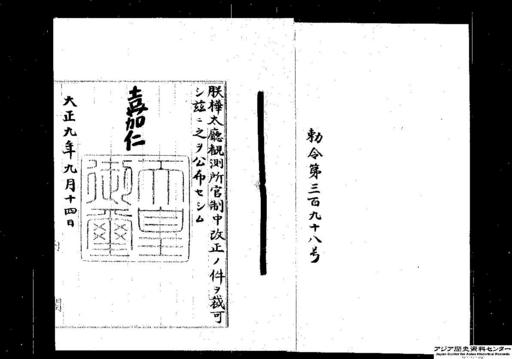 勅令第三百九十八号
朕樺太廳観測所官制中改正ノ件ヲ裁可
シ茲ニ之ヲ公布セシム
嘉仁
天皇御璽
大正九年九月十四日
アジア歴史資料センター
Japan Center for Asian Historical Records